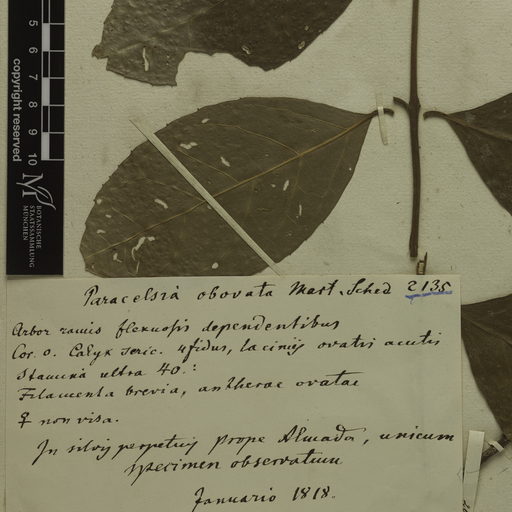 5
6
7
8
9
10
copyright reserved
BOTANISCHE
STAATSSAMMLUNG
MÜNCHEN
Paracelsia obovata Mart. Sched 2135
Arbor ramis flexuosis dependentibus
Cor. 0. Calyx seric. 4fidus, laciniis ovatis acutis
Stamina ultra 40.
Filamenta brevia, antherae ovatae
♀ non visa.
In silvis perpetuis prope Almada, unicum
specimen observatum
Januario 1818.